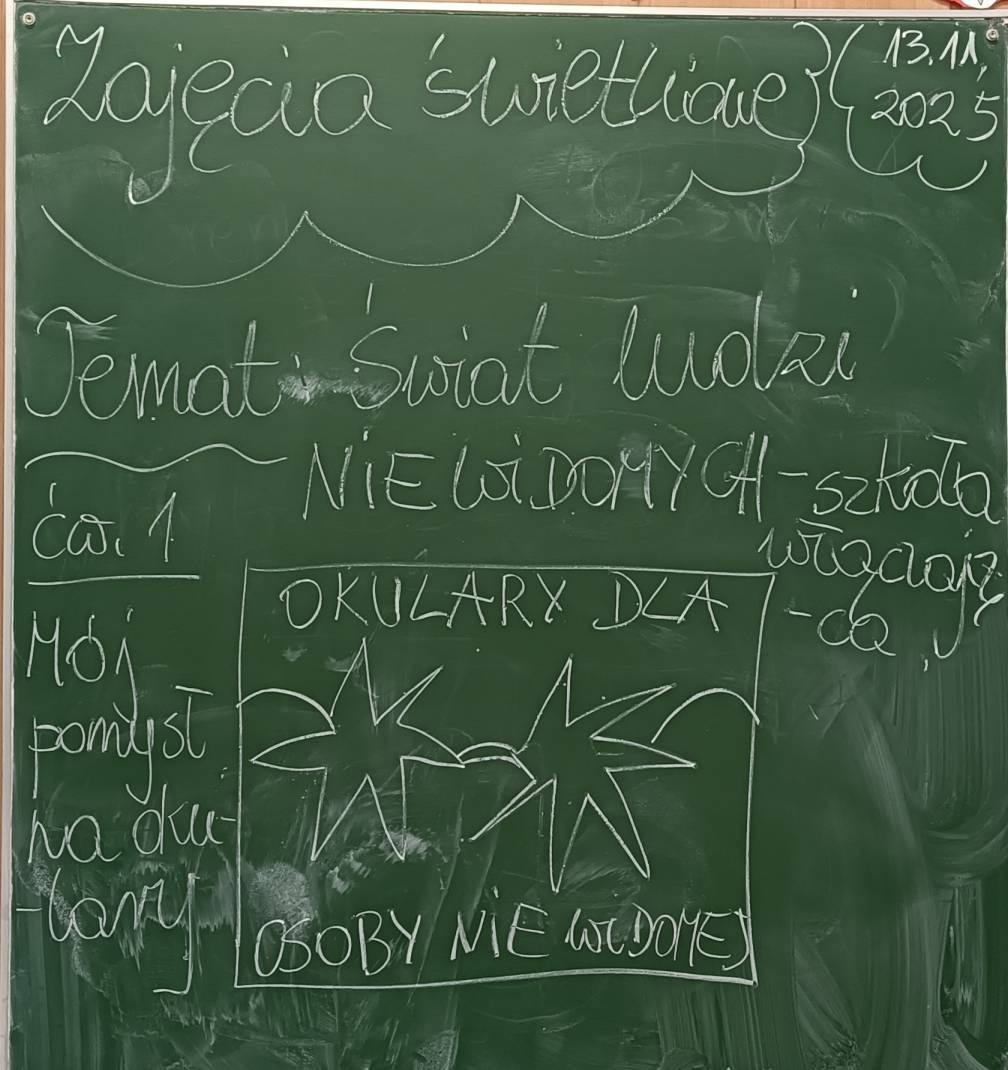 Zajęcia świetlicowe
13.11.
2025
Temat: Świat ludzi
NIEWIDOMYCH - szkoła
włączają
- ca
ćw. 1
Mój
pomysł
na oku-
- lary
OKULARY DLA
OSOBY NIEWIDOMEJ